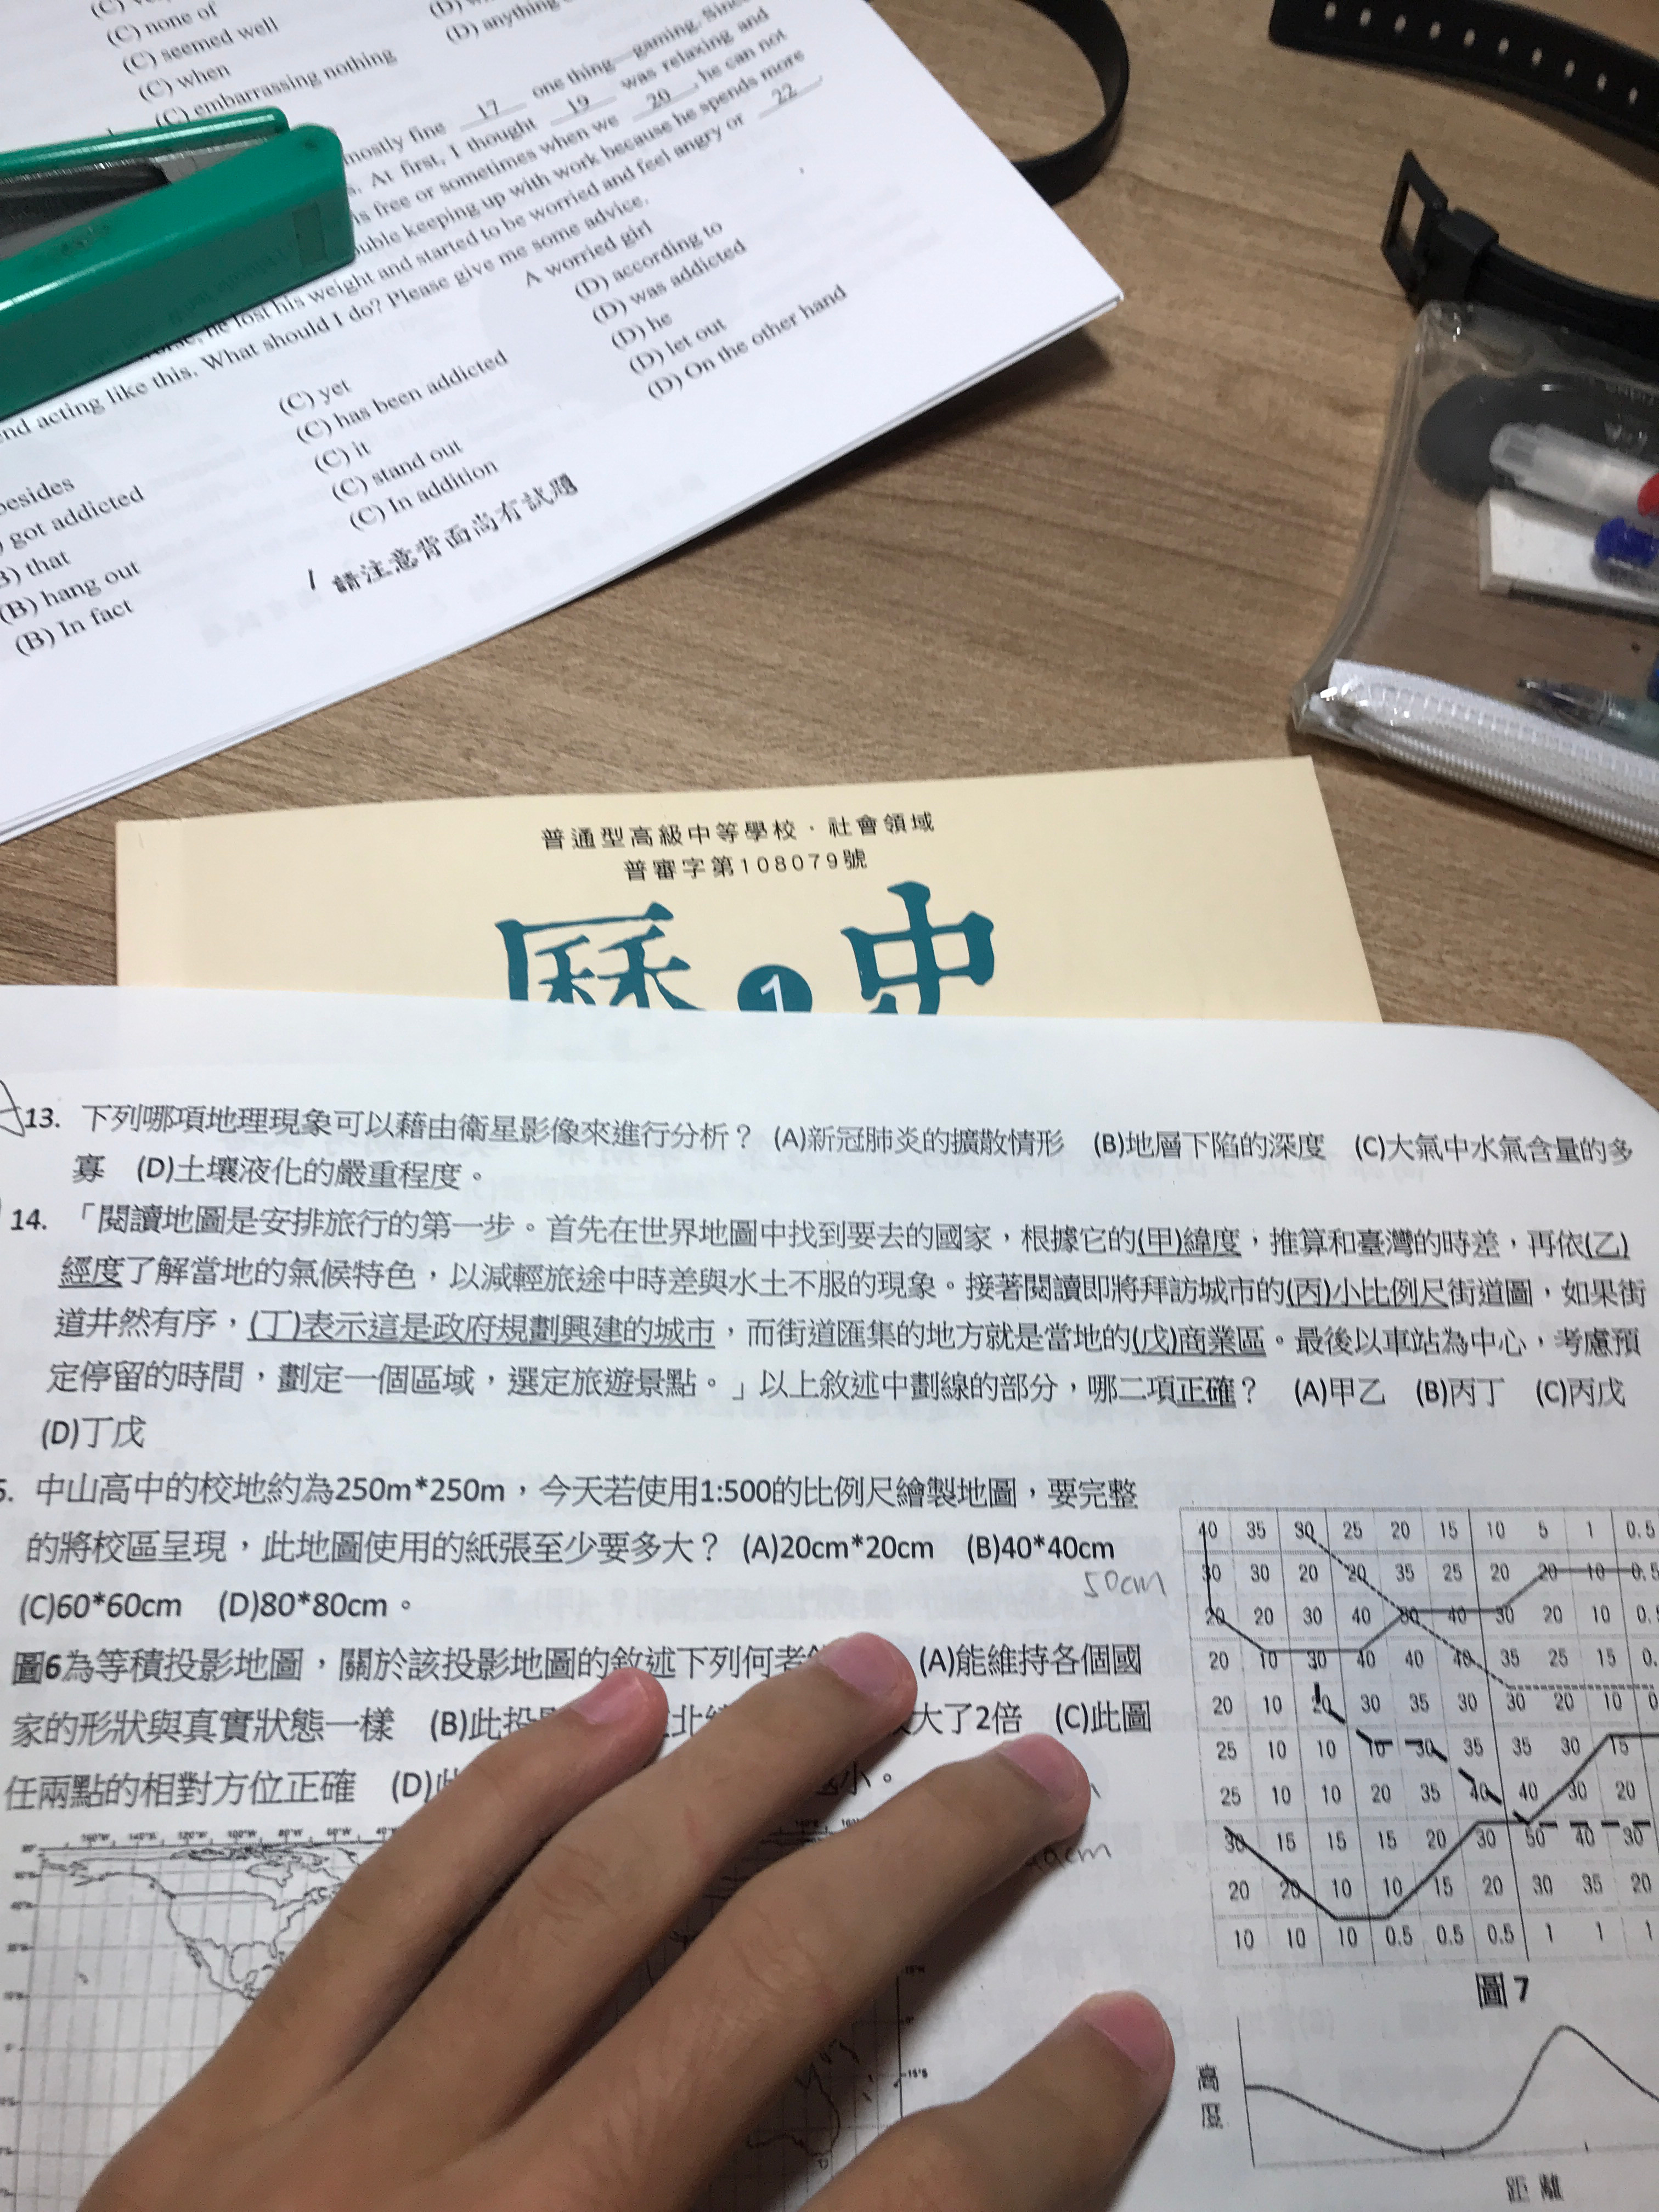 (C) none of
(C) seemed well
(D) anything
(C) when
(C) embarrassing nothing
mostly fine 17 one thing—gaming. Since
s. At first, I thought 19 was relaxing and
is free or sometimes when we 20, he can not
ouble keeping up with work because he spends more
he lost his weight and started to be worried and feel angry or 22.
end acting like this. What should I do? Please give me some advice.
A worried girl
besides
(C) yet
(D) according to
got addicted
(C) has been addicted
(D) was addicted
B) that
(C) it
(D) he
(B) hang out
(C) stand out
(D) let out
(B) In fact
(C) In addition
(D) On the other hand
請注意背面尚有試題
普通型高級中等學校·社會領域
普審字第108079號
歷1史
13. 下列哪項地理現象可以藉由衛星影像來進行分析？ (A)新冠肺炎的擴散情形 (B)地層下陷的深度 (C)大氣中水氣含量的多
寡 (D)土壤液化的嚴重程度。
14. 「閱讀地圖是安排旅行的第一步。首先在世界地圖中找到要去的國家，根據它的(甲)緯度；推算和臺灣的時差，再依(乙)
經度了解當地的氣候特色，以減輕旅途中時差與水土不服的現象。接著閱讀即將拜訪城市的(丙)小比例尺街道圖，如果街
道井然有序，(丁)表示這是政府規劃興建的城市，而街道匯集的地方就是當地的(戊)商業區。最後以車站為中心，考慮預
定停留的時間，劃定一個區域，選定旅遊景點。」以上敘述中劃線的部分，哪二項正確？ (A)甲乙 (B)丙丁 (C)丙戊
(D)丁戊
5. 中山高中的校地約為250m*250m，今天若使用1:500的比例尺繪製地圖，要完整
的將校區呈現，此地圖使用的紙張至少要多大？ (A)20cm*20cm (B)40*40cm
50cm
(C)60*60cm (D)80*80cm。
圖6為等積投影地圖，關於該投影地圖的敘述下列何者 (A)能維持各個國
家的形狀與真實狀態一樣 (B)此投 大了2倍 (C)此圖
任兩點的相對方位正確 (D) 小。
40 35 30 25 20 15 10 5 1 0.5
30 30 20 20 35 25 20 20 10 0.5
20 20 30 40 30 40 30 20 10 0.
20 10 30 40 40 40 35 25 15 0.
20 10 20 30 35 30 30 20 10 0
25 10 10 10 30 35 35 30 15
25 10 10 20 35 40 40 30 20
30 15 15 15 20 30 50 40 30
20 20 10 10 15 20 30 35 20
10 10 10 0.5 0.5 0.5 1 1 1
圖7
高度
距離